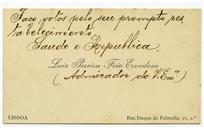 Faço votos pelo seu prompto res
tabelecimento.
Saude e Republica.
Luiz Pereira Feio Ervedosa
(Admirador de V. Exª)
LISBOA
Rua Duque de Palmella, 21, 2.º